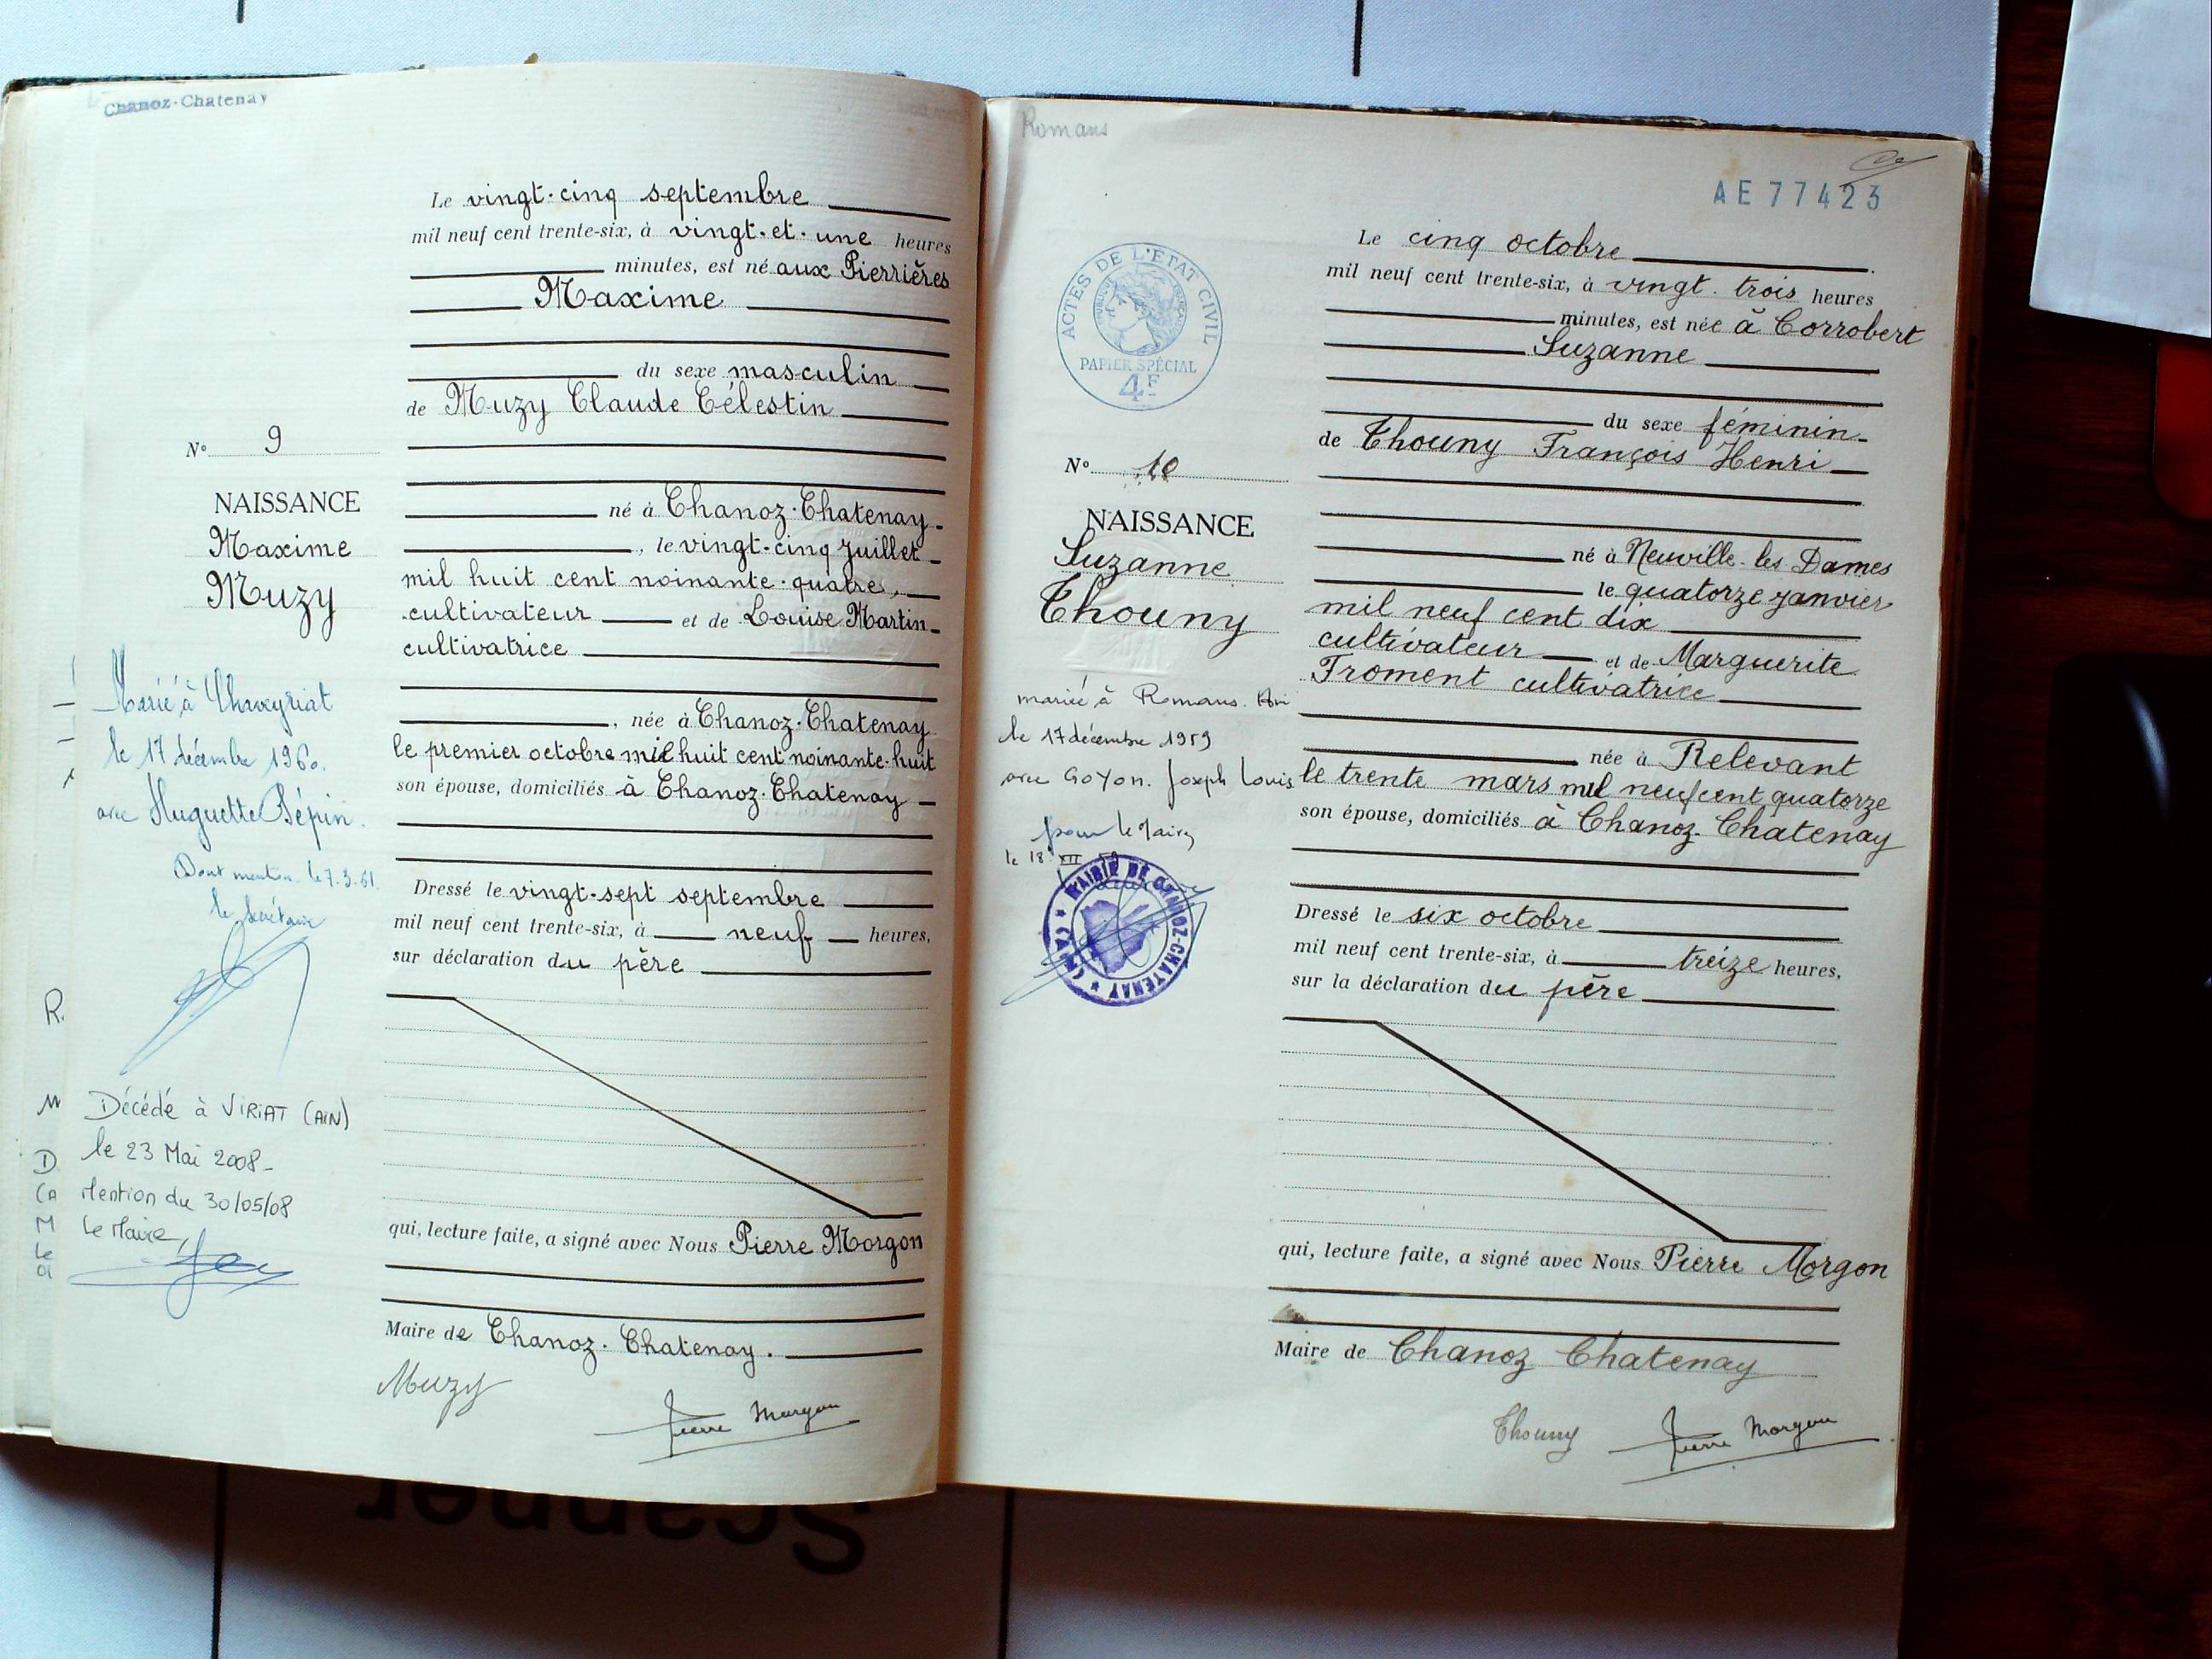 Chanoz-Chatenay
Le vingt-cinq septembre
mil neuf cent trente-six, à vingt-et-une heures
minutes, est né aux Pierrières
Maxime
du sexe masculin
de Muzy Claude Célestin
né à Chanoz-Chatenay
, le vingt-cinq juillet
mil huit cent noinante-quatre,
cultivateur et de Louise Martin
cultivatrice
, née à Chanoz-Chatenay
le premier octobre mil huit cent noinante-huit
son épouse, domiciliés à Chanoz-Chatenay
Dressé le vingt-sept septembre
mil neuf cent trente-six, à neuf heures,
sur déclaration du père
qui, lecture faite, a signé avec Nous Pierre Morgon
Maire de Chanoz-Chatenay.
Muzy
Pierre Morgon
N° 9
NAISSANCE
Maxime
Muzy
Marié à Chaveyriat
le 17 décembre 1960.
avec Huguette Bépin.
Dont mention le 7.3.61.
le secrétaire
Décédé à VIRIAT (AIN)
le 23 Mai 2008-
Mention du 30/05/08
Le Maire,
R.
M
D
CA
M
Le
Romans
AE77423
ACTES DE L'ETAT CIVIL
PAPIER SPÉCIAL
4F
Le cinq octobre
mil neuf cent trente-six, à vingt-trois heures
minutes, est née à Corrobert
Suzanne
du sexe féminin
de Thouny François Henri
né à Neuville-les Dames
le quatorze janvier
mil neuf cent dix
cultivateur et de Marguerite
Froment cultivatrice
née à Relevant
le trente mars mil neuf cent quatorze
son épouse, domiciliés à Chanoz-Chatenay
Dressé le six octobre
mil neuf cent trente-six, à treize heures,
sur la déclaration du père
qui, lecture faite, a signé avec Nous Pierre Morgon
Maire de Chanoz Chatenay
Thouny
Pierre Morgon
N° 10
NAISSANCE
Suzanne
Thouny
mariée à Romans. Ain
le 17 décembre 1959
avec GOYON. Joseph Louis
pour le Maire,
le 18 XII 59
MAIRIE DE CHANOZ-CHATENAY
(AIN)
Scanner